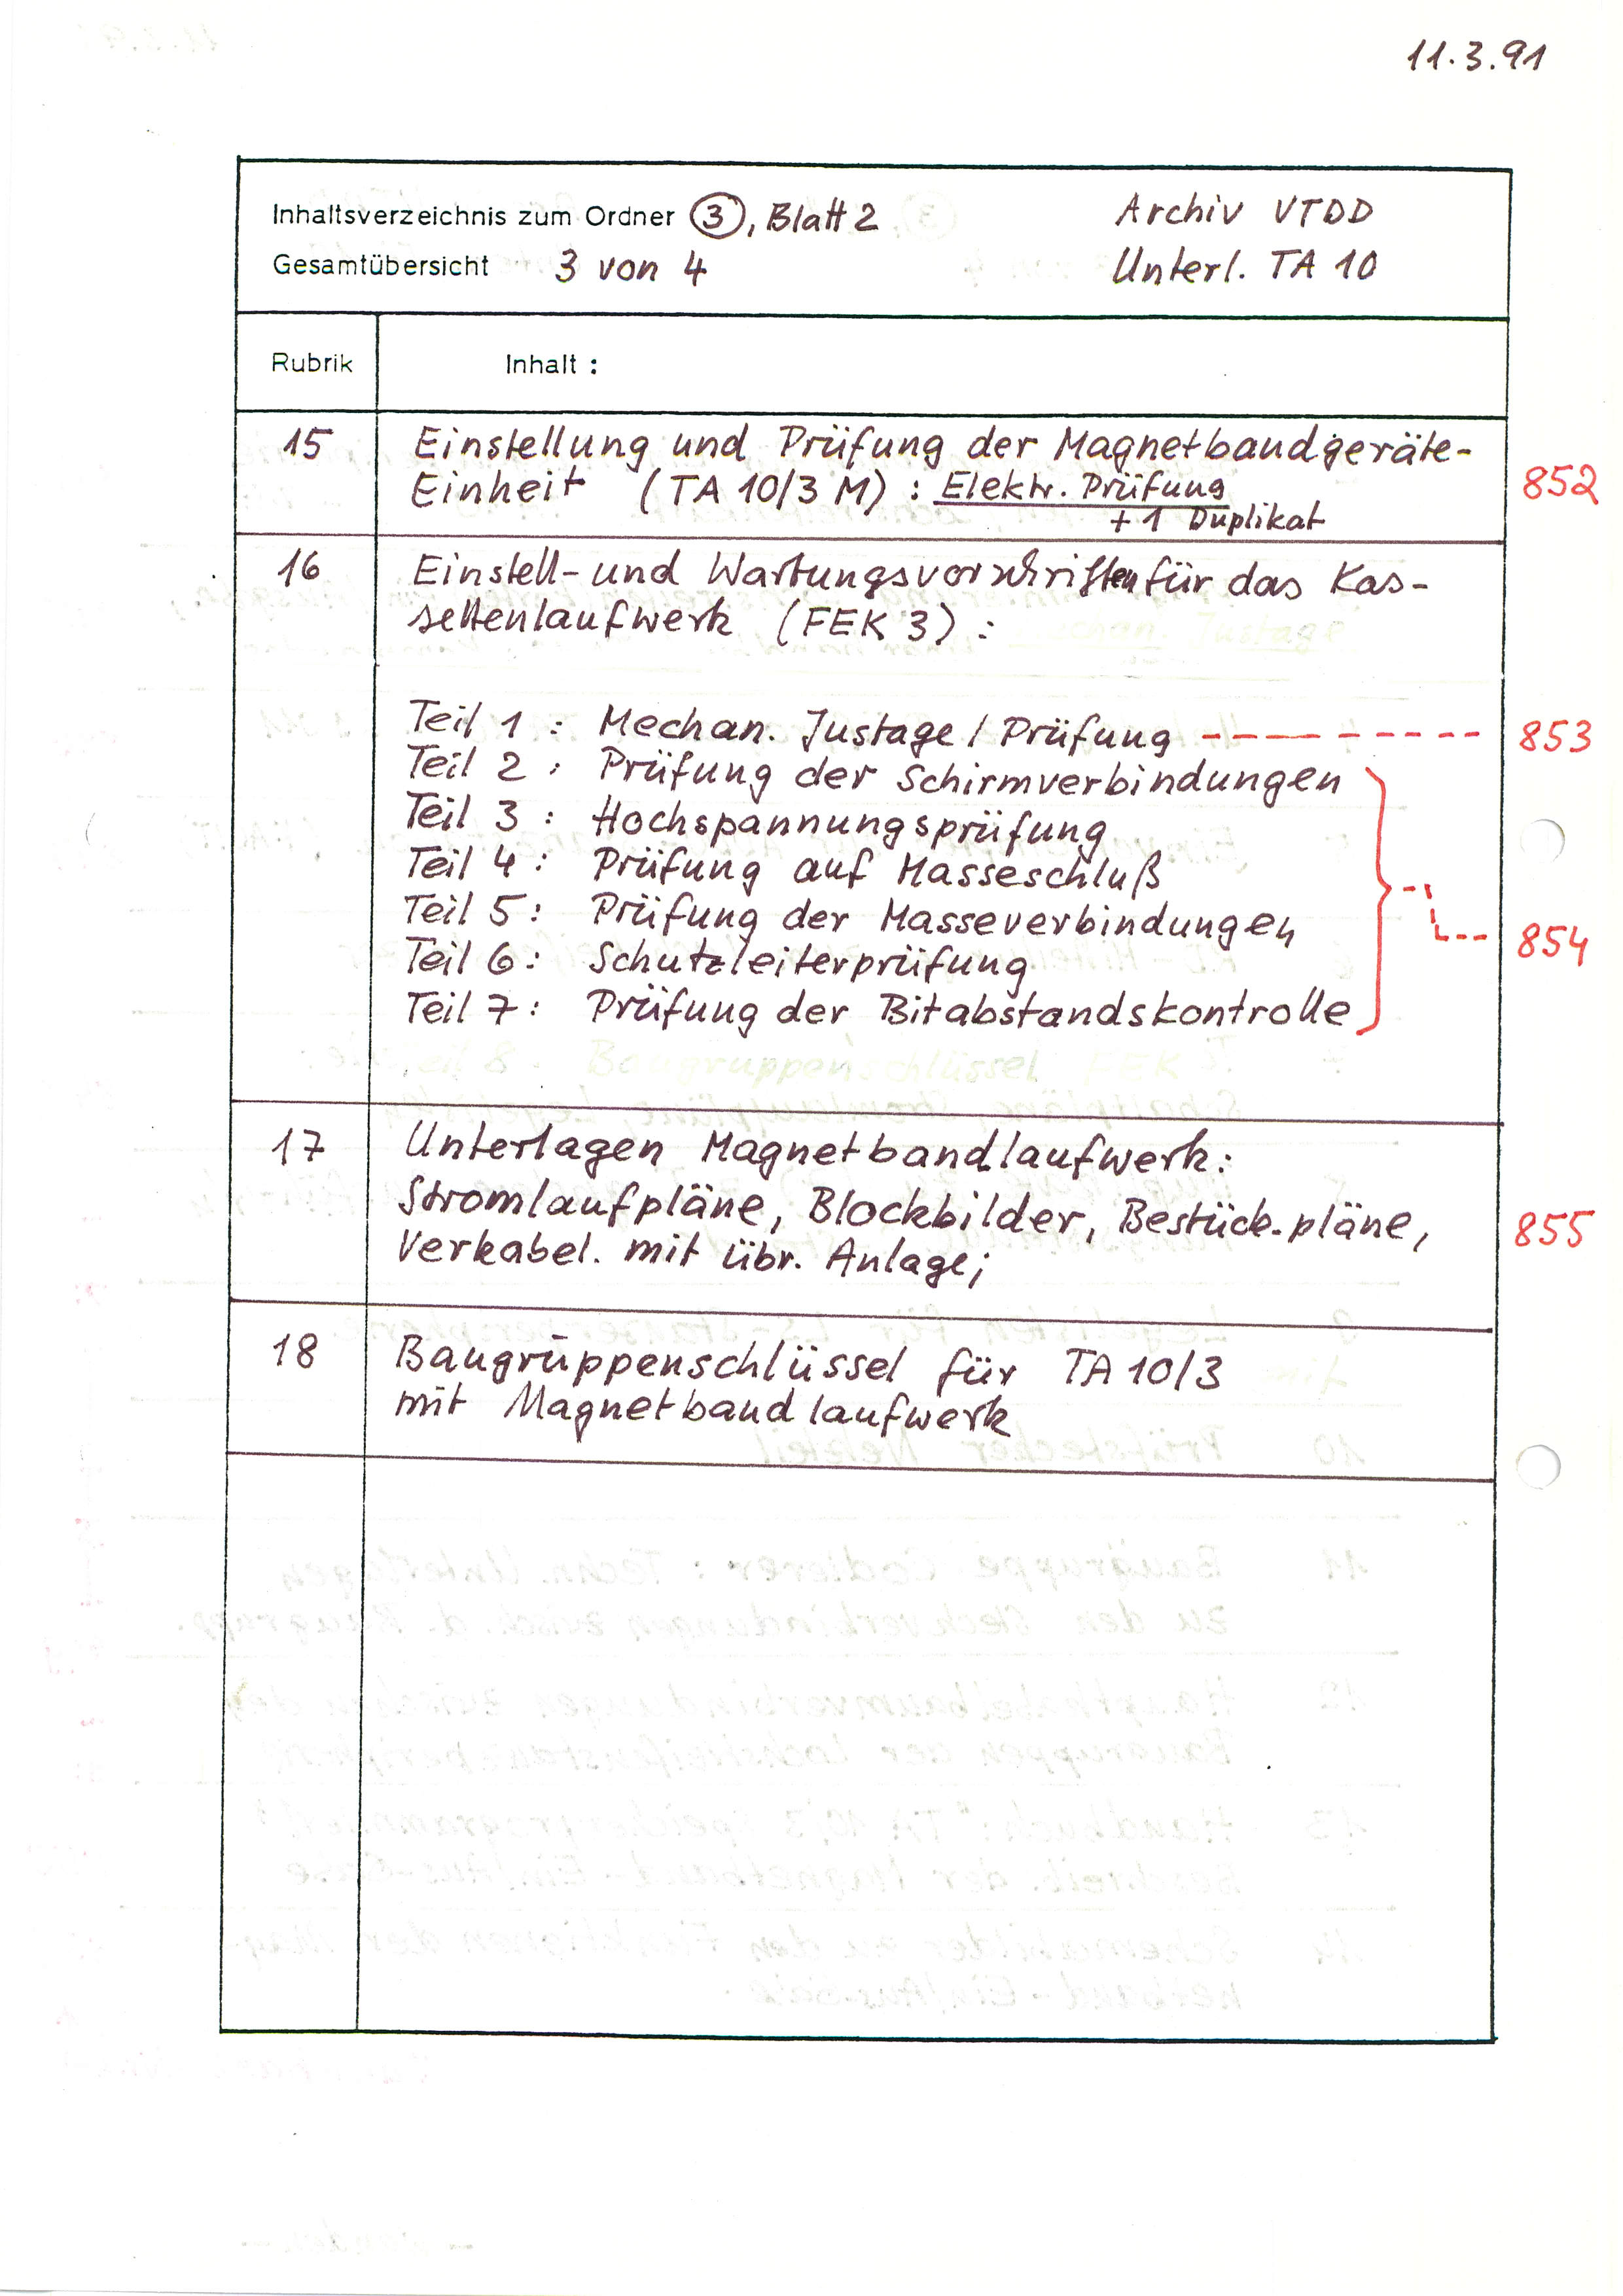 11.3.91
Inhaltsverzeichnis zum Ordner 3, Blatt 2
Archiv VTDD
Gesamtübersicht 3 von 4
Unterl. TA 10
Rubrik
Inhalt :
15 Einstellung und Prüfung der Magnetbandgeräte-
Einheit (TA 10/3 M) : Elektr. Prüfung
852
+ 1 Duplikat
16 Einstell- und Wartungsvorschriften für das Kas-
settenlaufwerk (FEK 3) :
Teil 1 : Mechan. Justage / Prüfung 853
Teil 2 : Prüfung der Schirmverbindungen
Teil 3 : Hochspannungsprüfung
Teil 4 : Prüfung auf Masseschluß
Teil 5 : Prüfung der Masseverbindungen
854
Teil 6 : Schutzleiterprüfung
Teil 7 : Prüfung der Bitabstandskontrolle
Teil 8 : Baugruppenschlüssel FEK
17 Unterlagen Magnetbandlaufwerk:
Stromlaufpläne, Blockbilder, Bestück.pläne,
855
Verkabel. mit übr. Anlage;
18 Baugruppenschlüssel für TA 10/3
mit Magnetbandlaufwerk